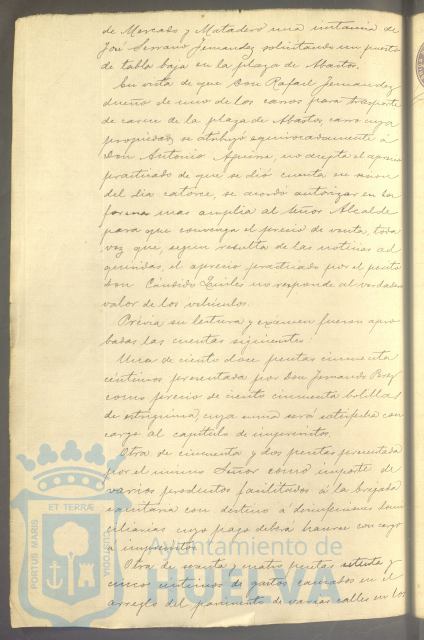 de Mercado y Matadero una instancia de
José Serrano Fernandez solicitando un puesto
de tabla baja en la plaza de Abastos.
En vista de que Don Rafael Fernandez
dueño de uno de los carros para trasporte
de carne de la plaza de Abastos, carro cuya
propiedad se atribuyó equivocadamente á
Don Antonio no acepta el aprecio
practicado de que se dió cuenta en sesion
del dia catorce, se acordó autorizar en
forma mas amplia al Señor Alcalde
para que convenga el precio de venta, toda
vez que, segun resulta de las noticias ad
quiridas, el aprecio practicado por el perito
Don Cándido Quiles no responde al verdadero
valor de los vehiculos.
Prévia su lectura y exámen fueron apro
badas las cuentas siguientes:
Una de ciento doce pesetas cincuenta
céntimos presentada por Don Fernando
como precio de ciento cincuenta bolillas
de estrignina, cuya suma será satisfecha con
cargo al capítulo de imprevistos.
Otra de cincuenta y dos pesetas presentada
por el mismo Señor como importe de
varios productos facilitados á la brigada
sanitaria con destino á desinfecciones domi
ciliarias cuyo pago deberá hacerse con cargo
á imprevistos.
Otra de y cuatro pesetas setenta y
cinco céntimos de gastos causados en el
arreglo del pavimento de varias calles en los
PORTUS MARIS
ET TERRAE
CUSTODIA
Ayuntamiento de
HUELVA